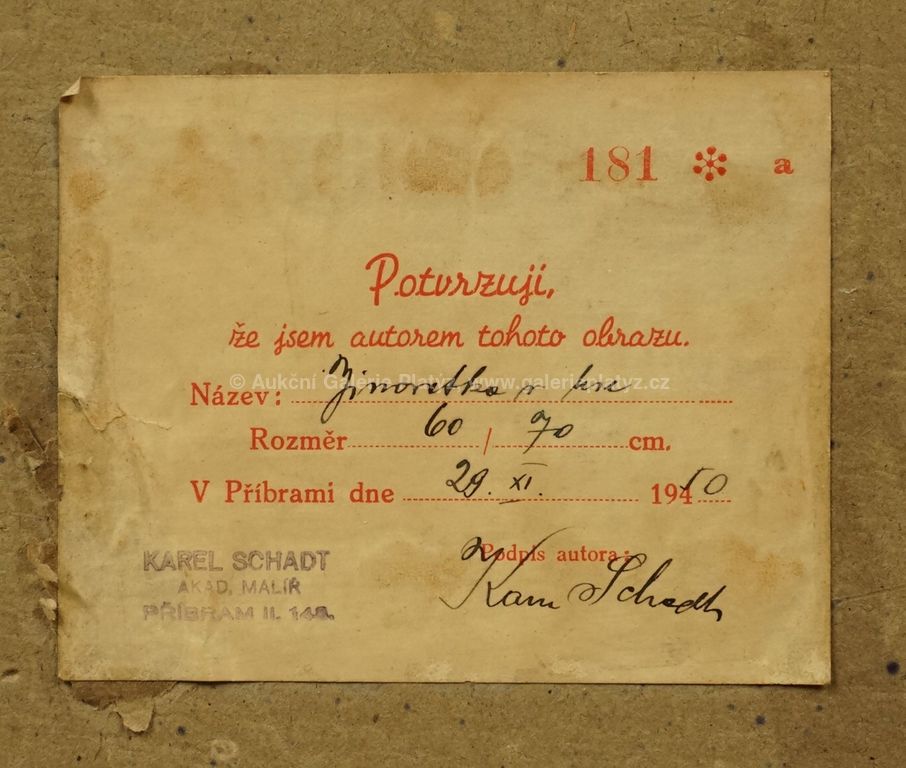 181 a
Potvrzuji,
že jsem autorem tohoto obrazu.
© Aukční Galerie Platýz www.galerieplatyz.cz
Název:
Rozměr 60 / 70 cm.
V Příbrami dne 29. XI. 1950
KAREL SCHADT
AKAD. MALÍŘ
PŘÍBRAM II.
Podpis autora:
Schadt